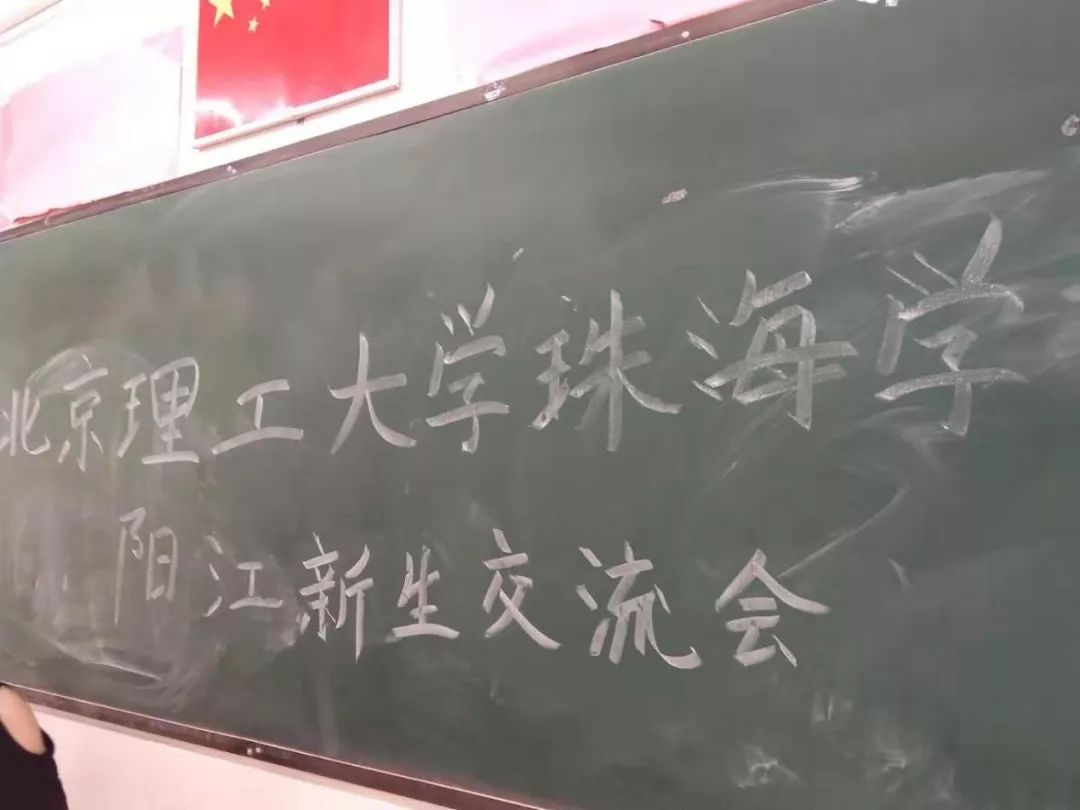 北京理工大学珠海学
阳江新生交流会